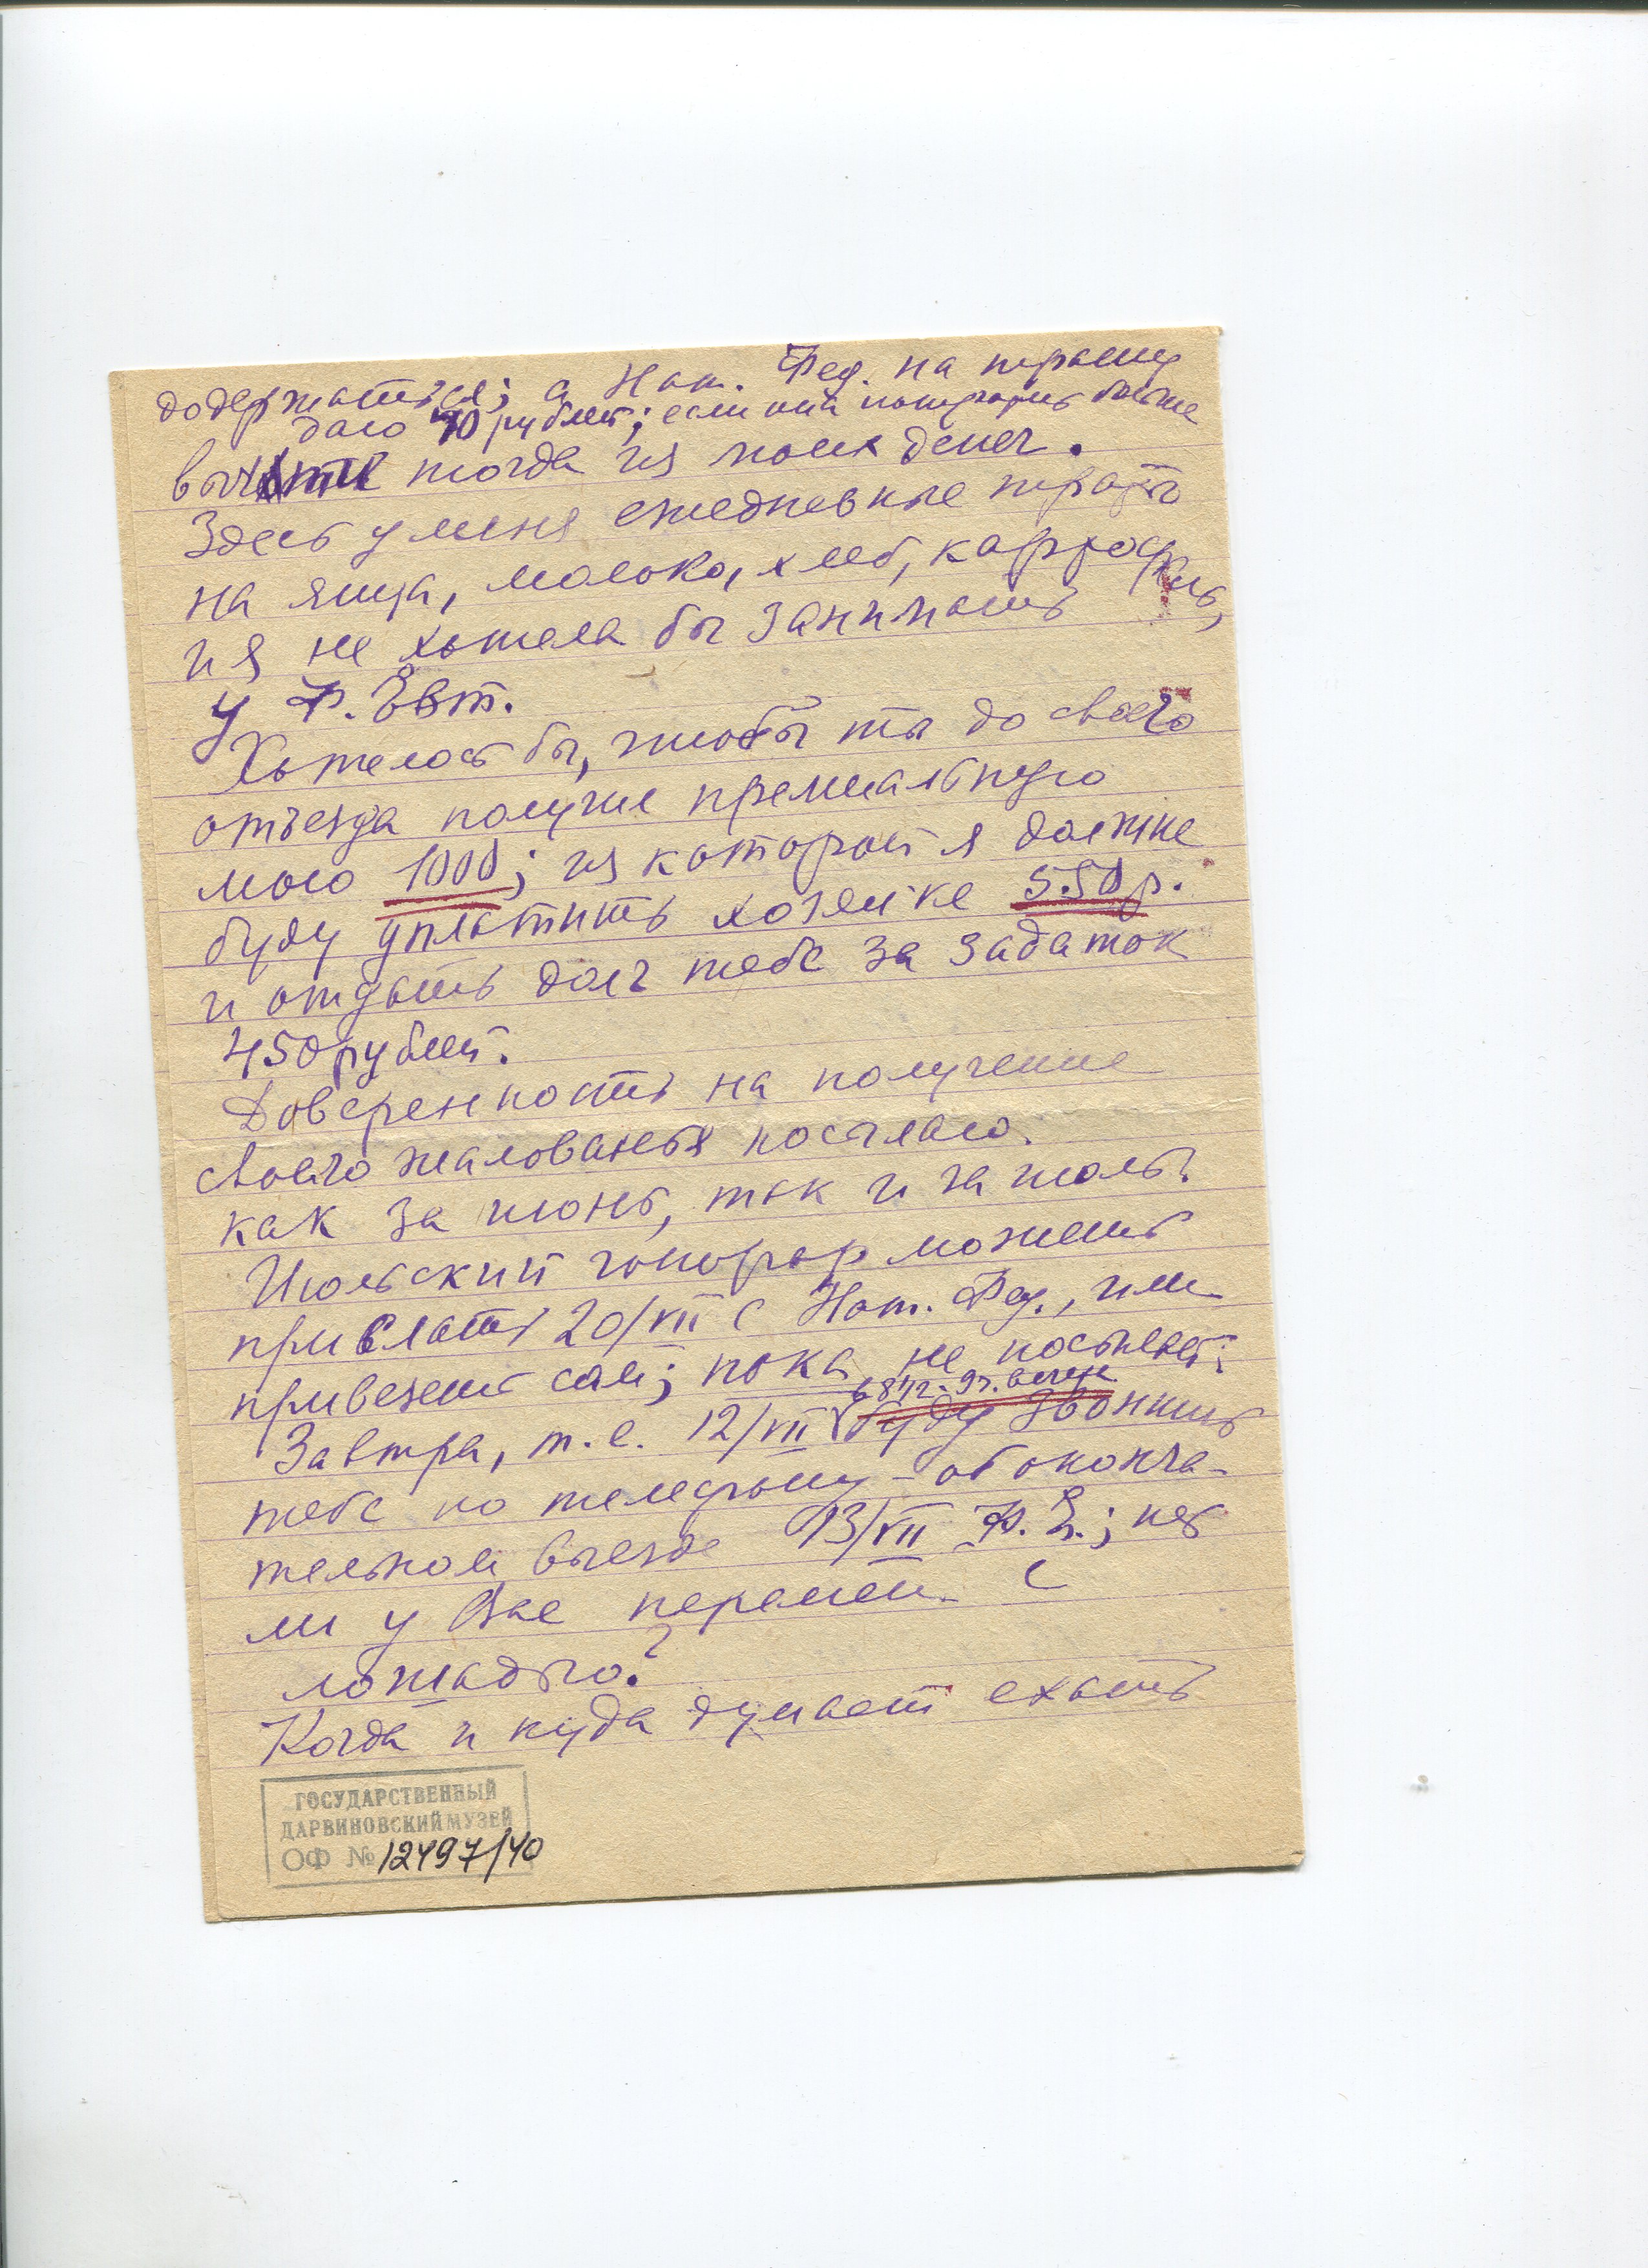 додержаться; а Нат. Фед. на
даю 70 рублей; если она потратит больше
вычти тогда из моих денег.
Здесь у меня ежедневные траты
на яйца, молоко, хлеб, картофель,
и я не хотела бы занимать
у Ф. Евт.
Хотелось бы, чтобы ты до своего
отъезда получил премиальную
мою 1000; из которой я должна
буду уплатить хозяйке 550 р.
и отдать долг тебе за задаток
450 рублей.
Доверенность на получение
своего жалованья посылаю.
как за июнь, так и за июль.
Июльский гонорар можешь
прислать 20/VII с Нат. Фед., или
привезешь сам; пока не посылай;
в 8 ч. - 9 ч. вечера
Завтра, т.е. 12/VII буду звонить
тебе по телефону - об оконча-
тельном выезде 13/VII Ф. Е.; нет
ли у Вас перемен. С
лошадью?
Когда и куда думает ехать
ГОСУДАРСТВЕННЫЙ
ДАРВИНОВСКИЙ МУЗЕЙ
ОФ № 12497/40